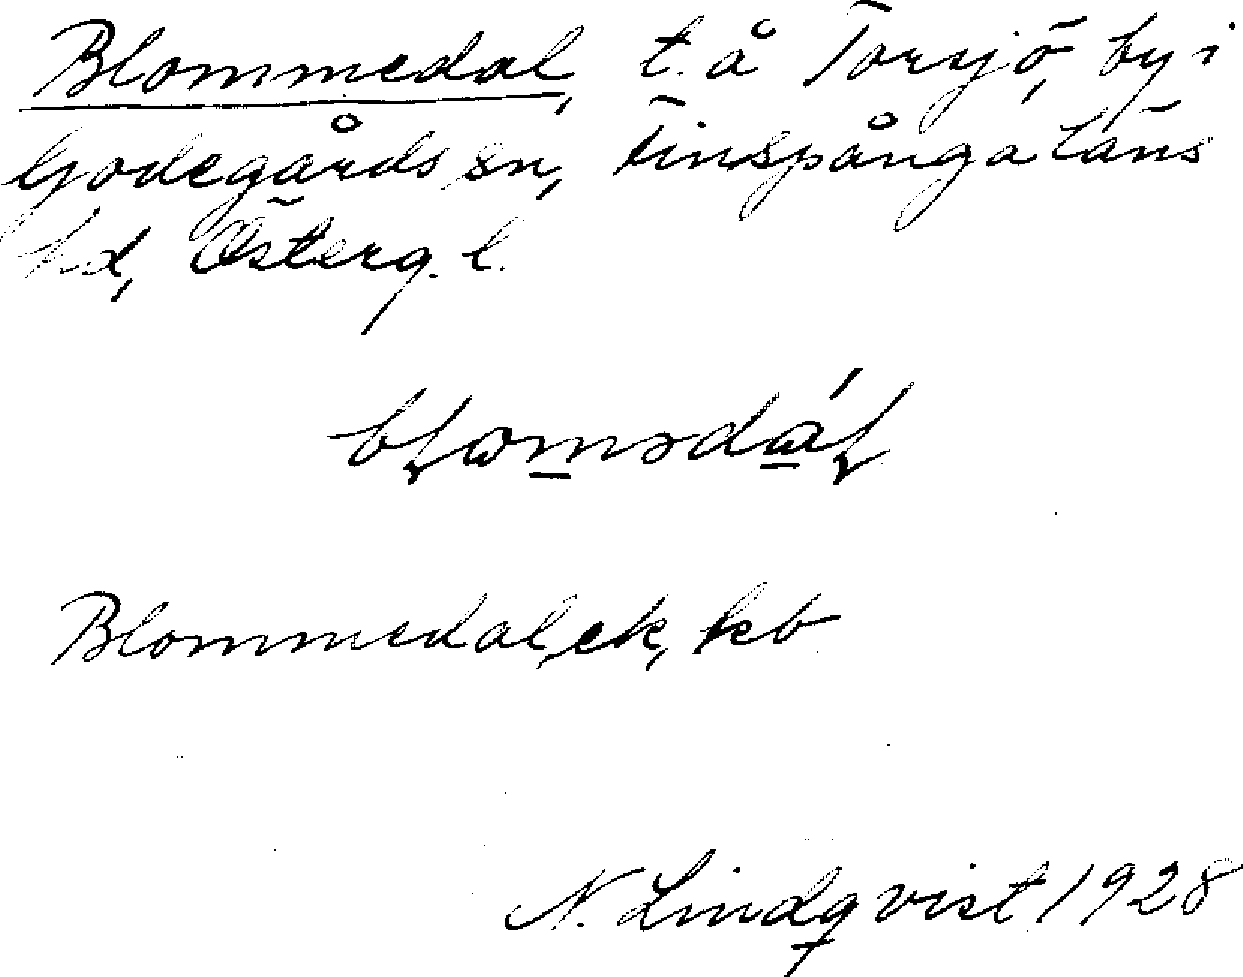 Blommedal, t. å Torsjö, by i
Godegårds sn, Finspånga läns
hd, Österg. l.
Blommedal, ek, kb
N. Lindqvist 1928